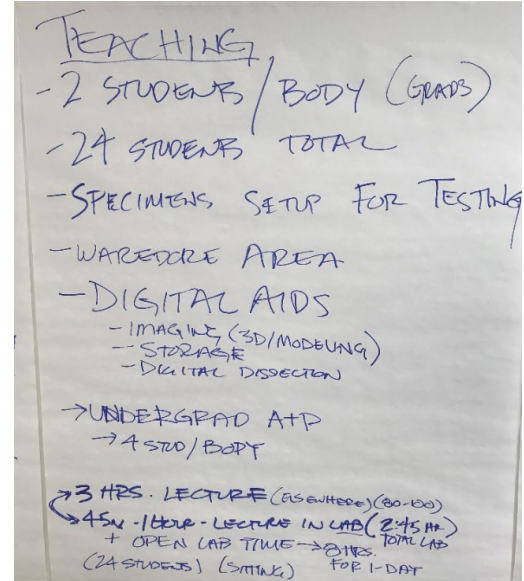 TEACHING
- 2 STUDENTS / BODY (GRADS)
- 24 STUDENTS TOTAL
- SPECIMENS SETUP FOR TESTING
- WAREDORE AREA
- DIGITAL AIDS
- IMAGING (3D/MODELING)
- STORAGE
- DIGITAL DISSECTON
→ UNDERGRAD A+P
→ 4 STUD/BODY
→ 3 HRS. LECTURE (ELSEWHERE) (80-100)
→ 45M - 1 HOUR - LECTURE IN LAB (2:45 HR)
TOTAL LAB
+ OPEN LAB TIME → 8 HRS.
(24 STUDENTS) (SITTING) FOR 1-DAY